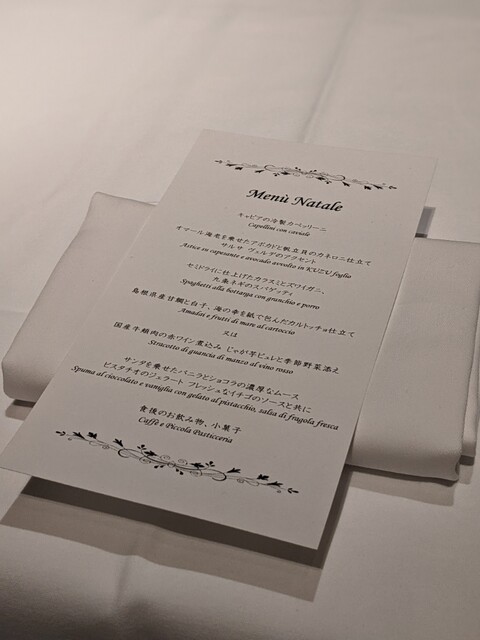 Menù Natale
キャビアの冷製カペッリーニ
Capellini con caviale
オマール海老を乗せたアボカドと帆立貝のカネロニ仕立て
サルサ ヴェルデのアクセント
Astice su capesante e avocado avvolto in KUZU foglio
セミドライに仕上げたカラスミとズワイガニ、
九条ネギのスパゲッティ
Spaghetti alla bottarga con granchio e porro
島根県産甘鯛と白子、海の幸を紙で包んだカルトッチョ仕立て
Amadai e frutti di mari al cartoccio
又は
国産牛頬肉の赤ワイン煮込み じゃが芋ピュレと季節野菜添え
Stracotto di guancia di manzo al vino rosso
サンタを乗せたバニラとショコラの濃厚なムース
ピスタチオのジェラート フレッシュなイチゴのソースと共に
Spuma al cioccolato e vaniglia con gelato al pistacchio, salsa di frugola fresca
食後のお飲み物、小菓子
Caffè e Piccola Pasticceria